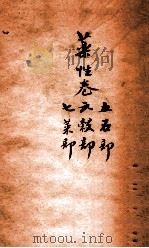 五石部
藥性卷六穀部
七菜部